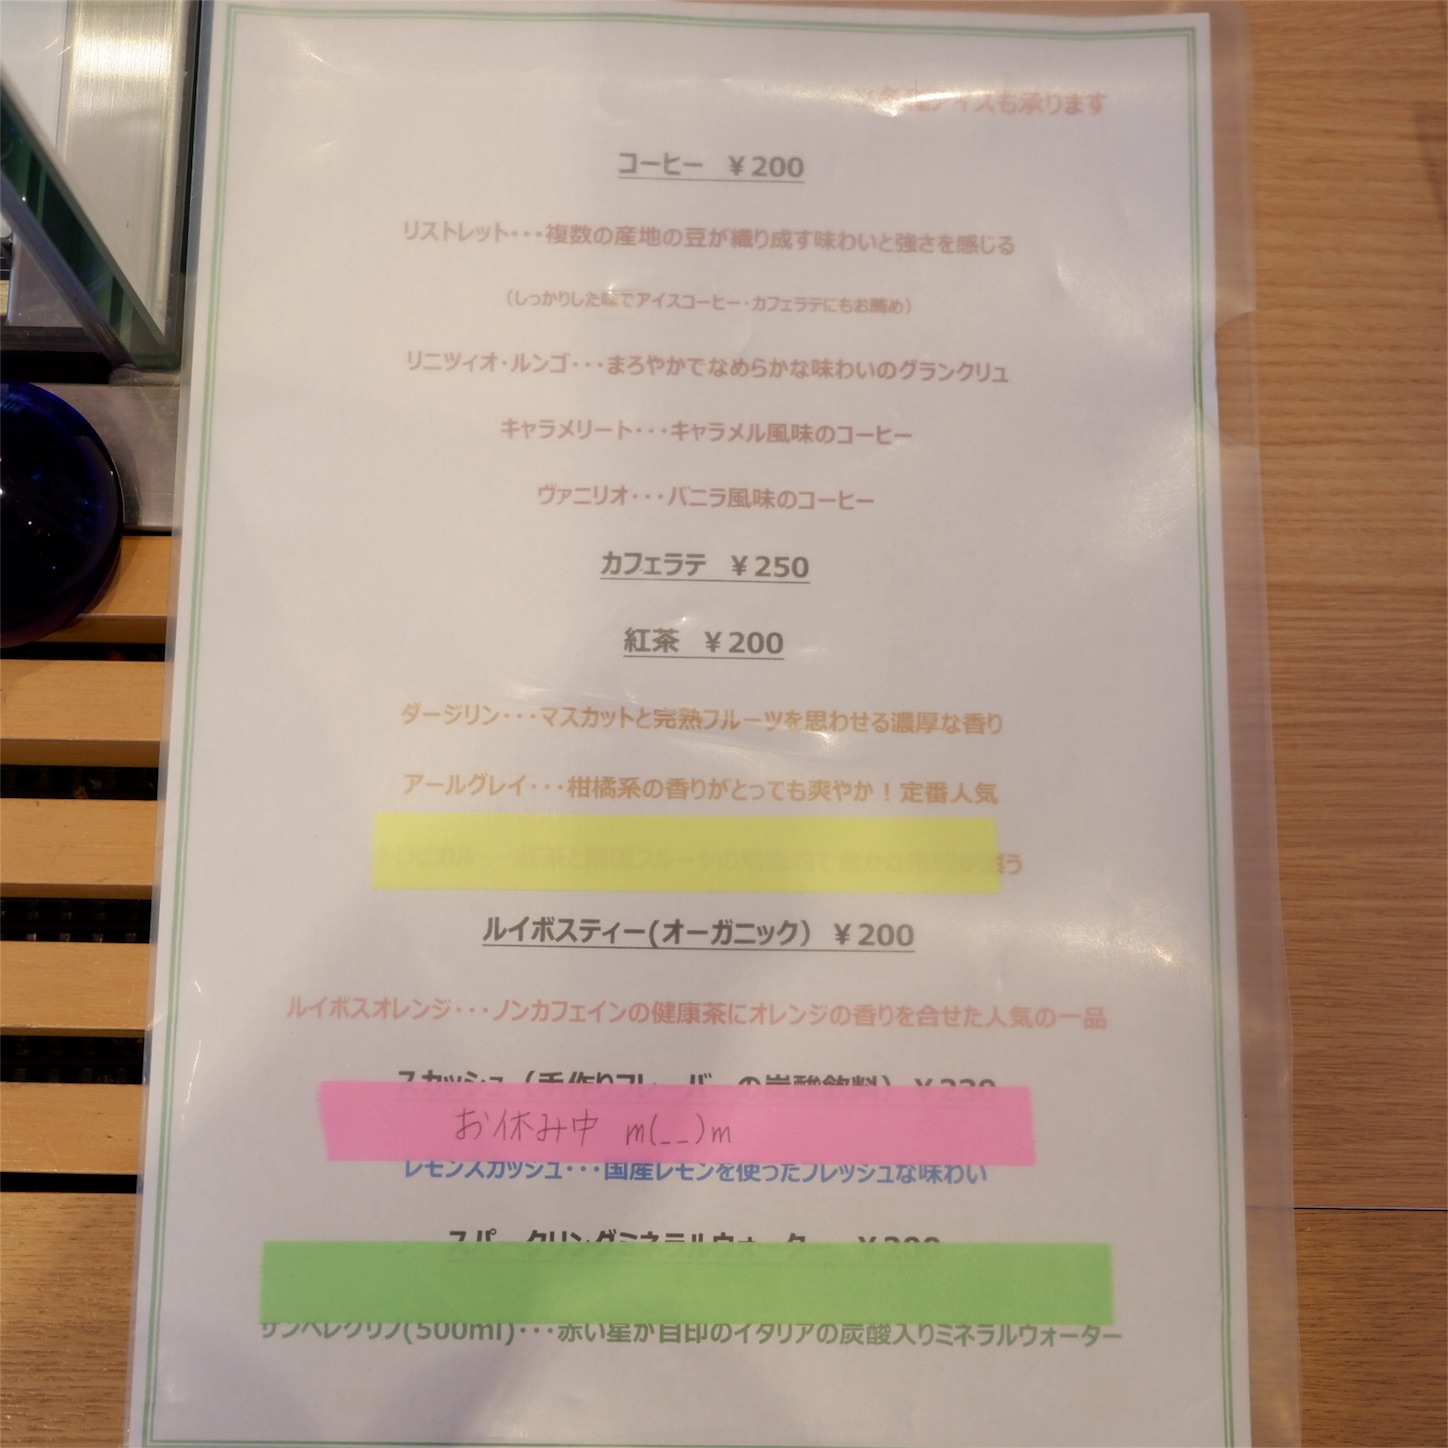 アイスも承ります
コーヒー ￥200
リストレット・・・複数の産地の豆が織り成す味わいと強さを感じる
（しっかりした味でアイスコーヒー・カフェラテにもお薦め）
リニツィオ・ルンゴ・・・まろやかでなめらかな味わいのグランクリュ
キャラメリート・・・キャラメル風味のコーヒー
ヴァニリオ・・・バニラ風味のコーヒー
カフェラテ ￥250
紅茶 ￥200
ダージリン・・・マスカットと完熟フルーツを思わせる濃厚な香り
アールグレイ・・・柑橘系の香りがとっても爽やか！定番人気
トロピカル・・・紅茶と
ルイボスティー(オーガニック） ￥200
ルイボスオレンジ・・・ノンカフェインの健康茶にオレンジの香りを合せた人気の一品
スカッシュ（手作りフレーバーの炭酸飲料）
お休み中 m(_ _)m
レモンスカッシュ・・・国産レモンを使ったフレッシュな味わい
スパークリングミネラルウォーター
サンペレグリノ(500ml)・・・赤い星が目印のイタリアの炭酸入りミネラルウォーター